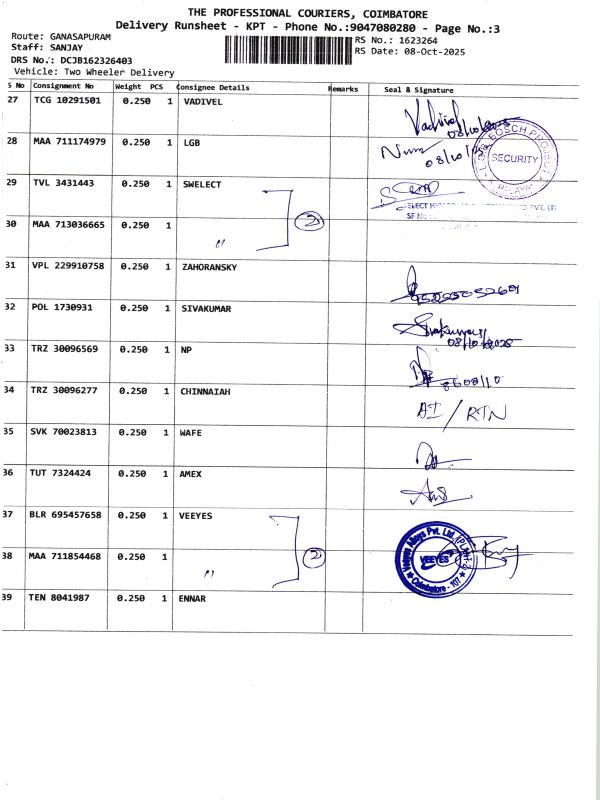 THE PROFESSIONAL COURIERS, COIMBATORE
Delivery Runsheet - KPT - Phone No.:9047080280 - Page No.:3
Route: GANASAPURAM
RS No.: 1623264
Staff: SANJAY
RS Date: 08-Oct-2025
DRS No.: DCJB162326403
Vehicle: Two Wheeler Delivery
S No Consignment No Weight PCS Consignee Details Remarks Seal & Signature
27 TCG 10291501 0.250 1 VADIVEL Vadivel
08/10/2025
28 MAA 711174979 0.250 1 LGB
08/10/25
BOSCH PROJECT
SECURITY
29 TVL 3431443 0.250 1 SWELECT
2
PVT. LTD
30 MAA 713036665 0.250 1 "
31 VPL 229910758 0.250 1 ZAHORANSKY
32 POL 1730931 0.250 1 SIVAKUMAR Sivakumar
08/10/2025
33 TRZ 30096569 0.250 1 NP
34 TRZ 30096277 0.250 1 CHINNAIAH AI / RTN
35 SVK 70023813 0.250 1 WAFE
36 TUT 7324424 0.250 1 AMEX
37 BLR 695457658 0.250 1 VEEYES
2
Veeyes Alloys Pvt. Ltd.
VEEYES
Coimbatore - 107
38 MAA 711854468 0.250 1 "
39 TEN 8041987 0.250 1 ENNAR